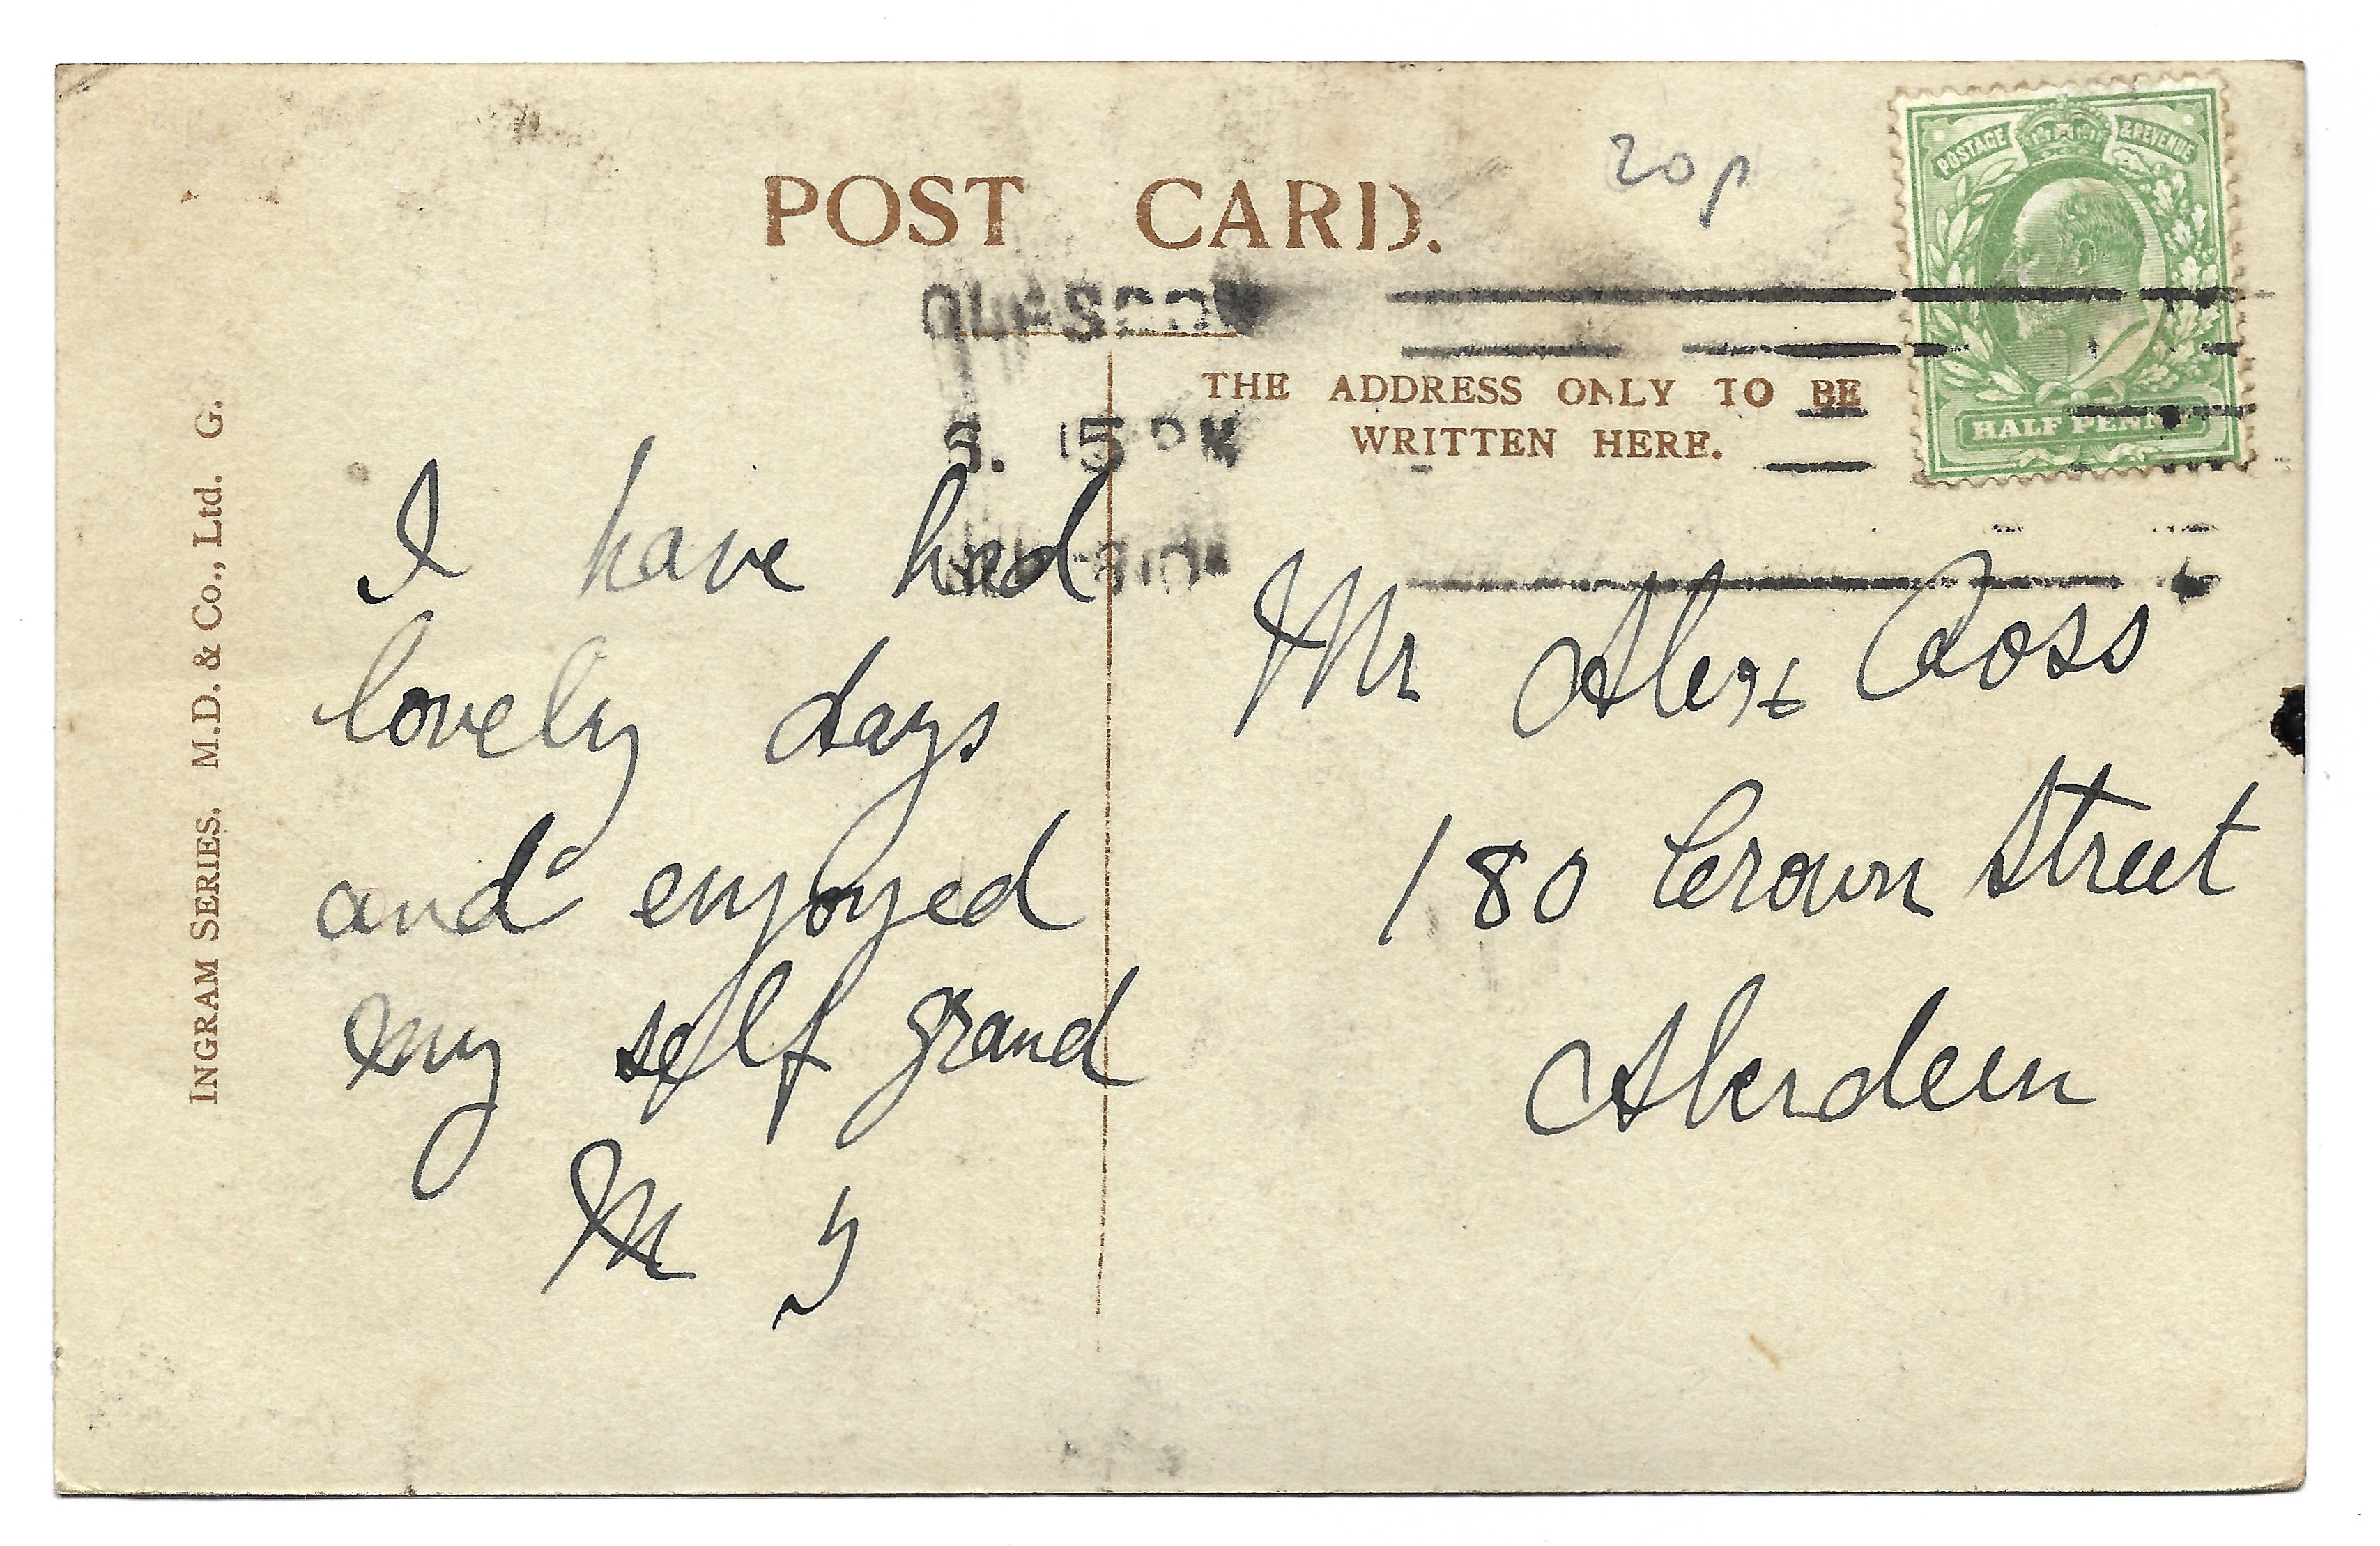 POST CARD.
20p
POSTAGE & REVENUE
HALF PENNY
GLASGOW
THE ADDRESS ONLY TO BE
WRITTEN HERE.
INGRAM SERIES. M.D. & Co., Ltd. G.
I have had
lovely days
and enjoyed
my self grand
M
Mr Alex Ross
180 Crown Street
Aberdeen